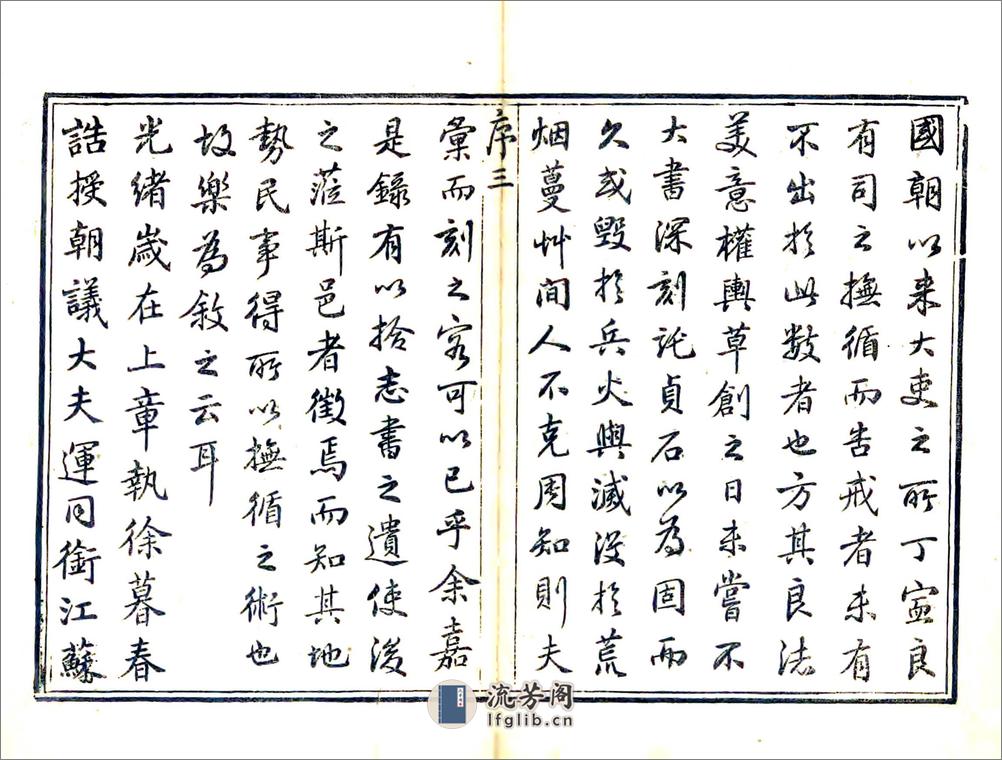 國朝以来大吏之所丁寍良
有司之撫循而告戒者未有
不出於此数者也方其良法
美意權輿草創之日未嘗不
大書深刻託貞石以為固而
久或毀於兵火與滅没於荒
烟蔓艸间人不克周知則夫
序三
彙而刻之容可以已乎余嘉
是錄有以拾志書之遺使後
之蒞斯邑者徵焉而知其地
勢民事得所以撫循之術也
故樂為敘之云耳
光緒歲在上章執徐暮春
誥授朝議大夫運同銜江蘇
流芳阁
lfglib.cn